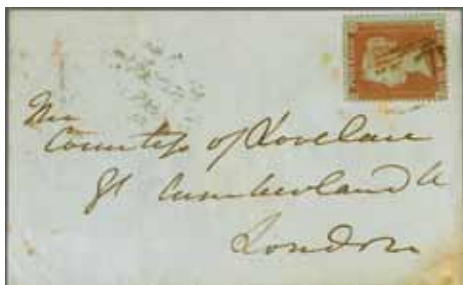 The
Countess of Lovelace
Gt Cumberland
London